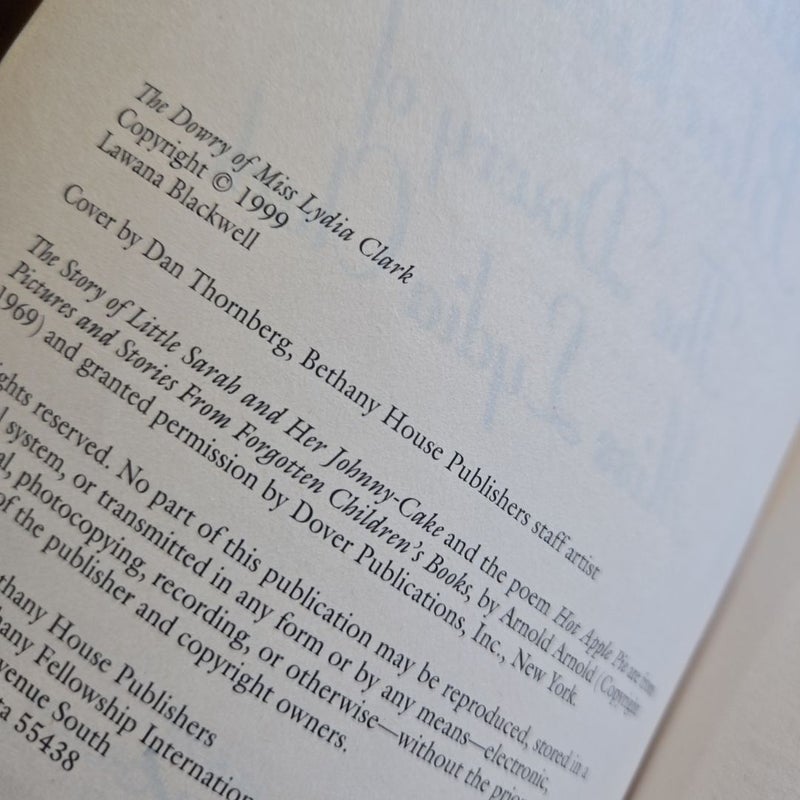 The Dowry of Miss Lydia Clark
Copyright © 1999
Lawana Blackwell
Cover by Dan Thornberg, Bethany House Publishers staff artist
The Story of Little Sarah and Her Johnny-Cake and the poem Hot Apple Pie are from
Pictures and Stories From Forgotten Children's Books, by Arnold Arnold (Copyright
1969) and granted permission by Dover Publications, Inc., New York.
ghts reserved. No part of this publication may be reproduced, stored in a
l system, or transmitted in any form or by any means—electronic,
al, photocopying, recording, or otherwise—without the prior
of the publisher and copyright owners.
thany House Publishers
hany Fellowship International
venue South
ta 55438